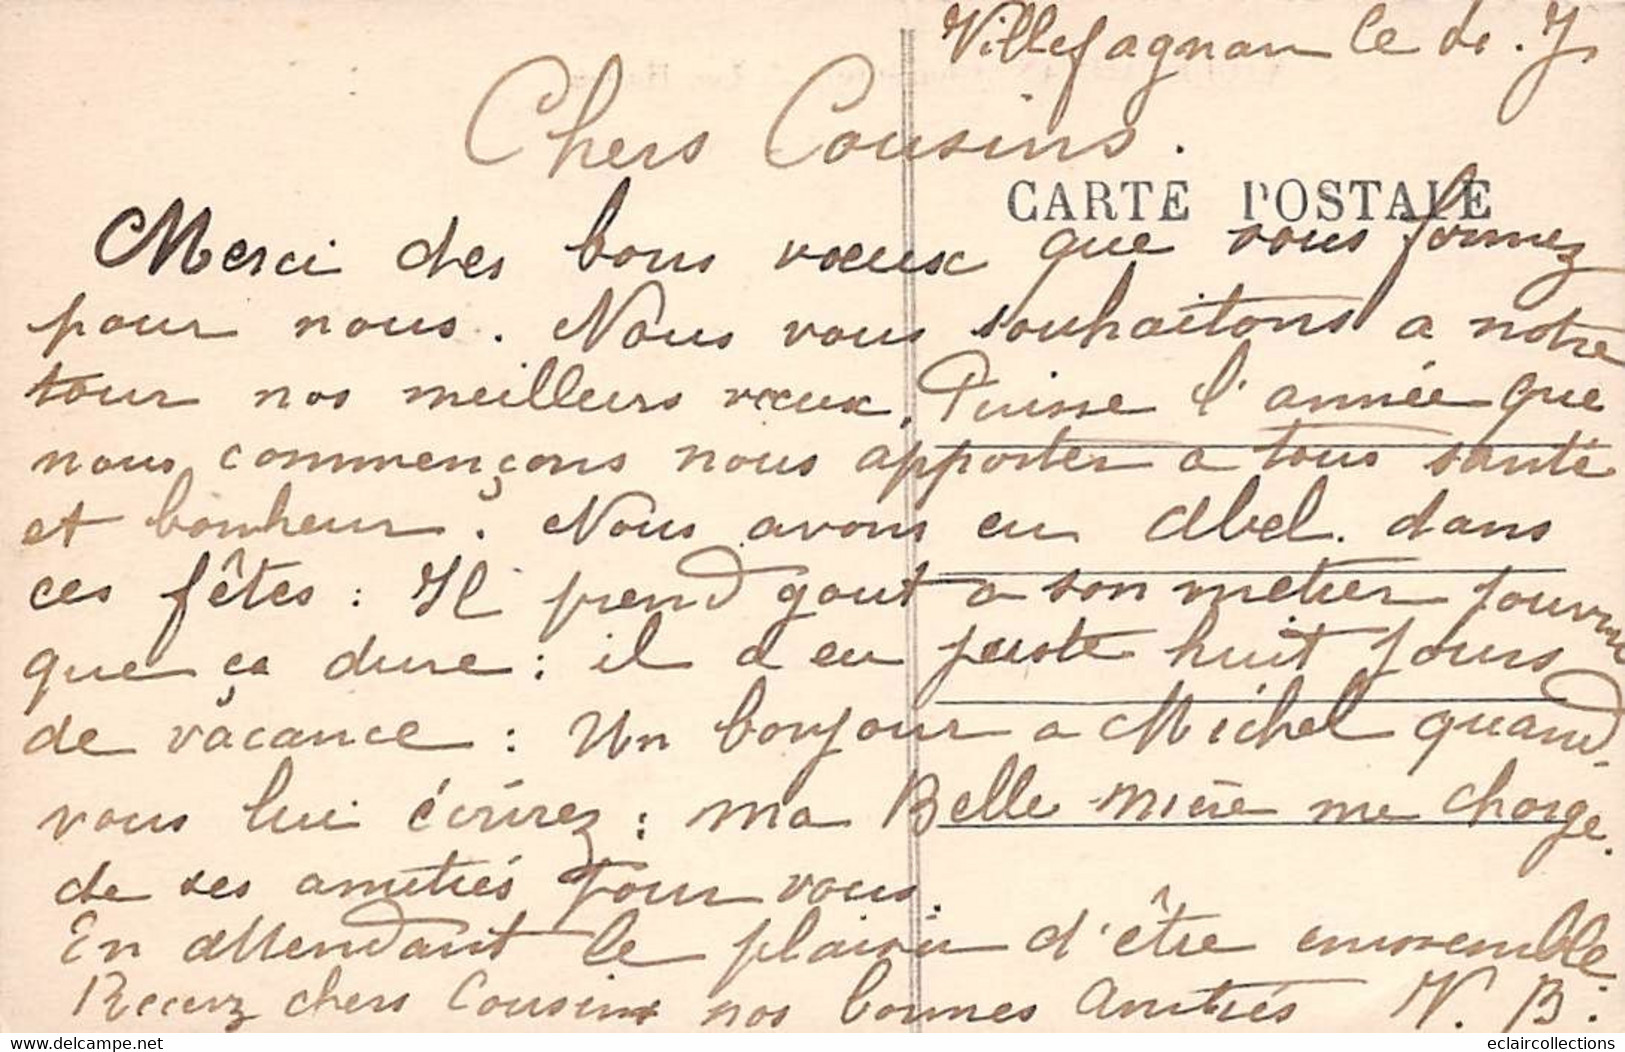 Villefagnan le 10. J
Chers Cousins.
CARTE POSTALE
Merci des bons vœux que vous formez
pour nous. Nous vous souhaitons a notre
tour nos meilleurs vœux. Puisse l'année que
nous commençons nous apporter a tous santé
et bonheur. Nous avons eu Abel. dans
ces fêtes : Il prend gout a son metier pourvu
que ça dure : il a eu juste huit jours
de vaçance : Un bonjour a Michel quand
vous lui écrirez : ma Belle mière me charge
de ses amitiés pour vous.
En attendant le plaisir d'être ensemble
Recevez chers Cousins nos bonnes amitiés N. B.
eclaircollections